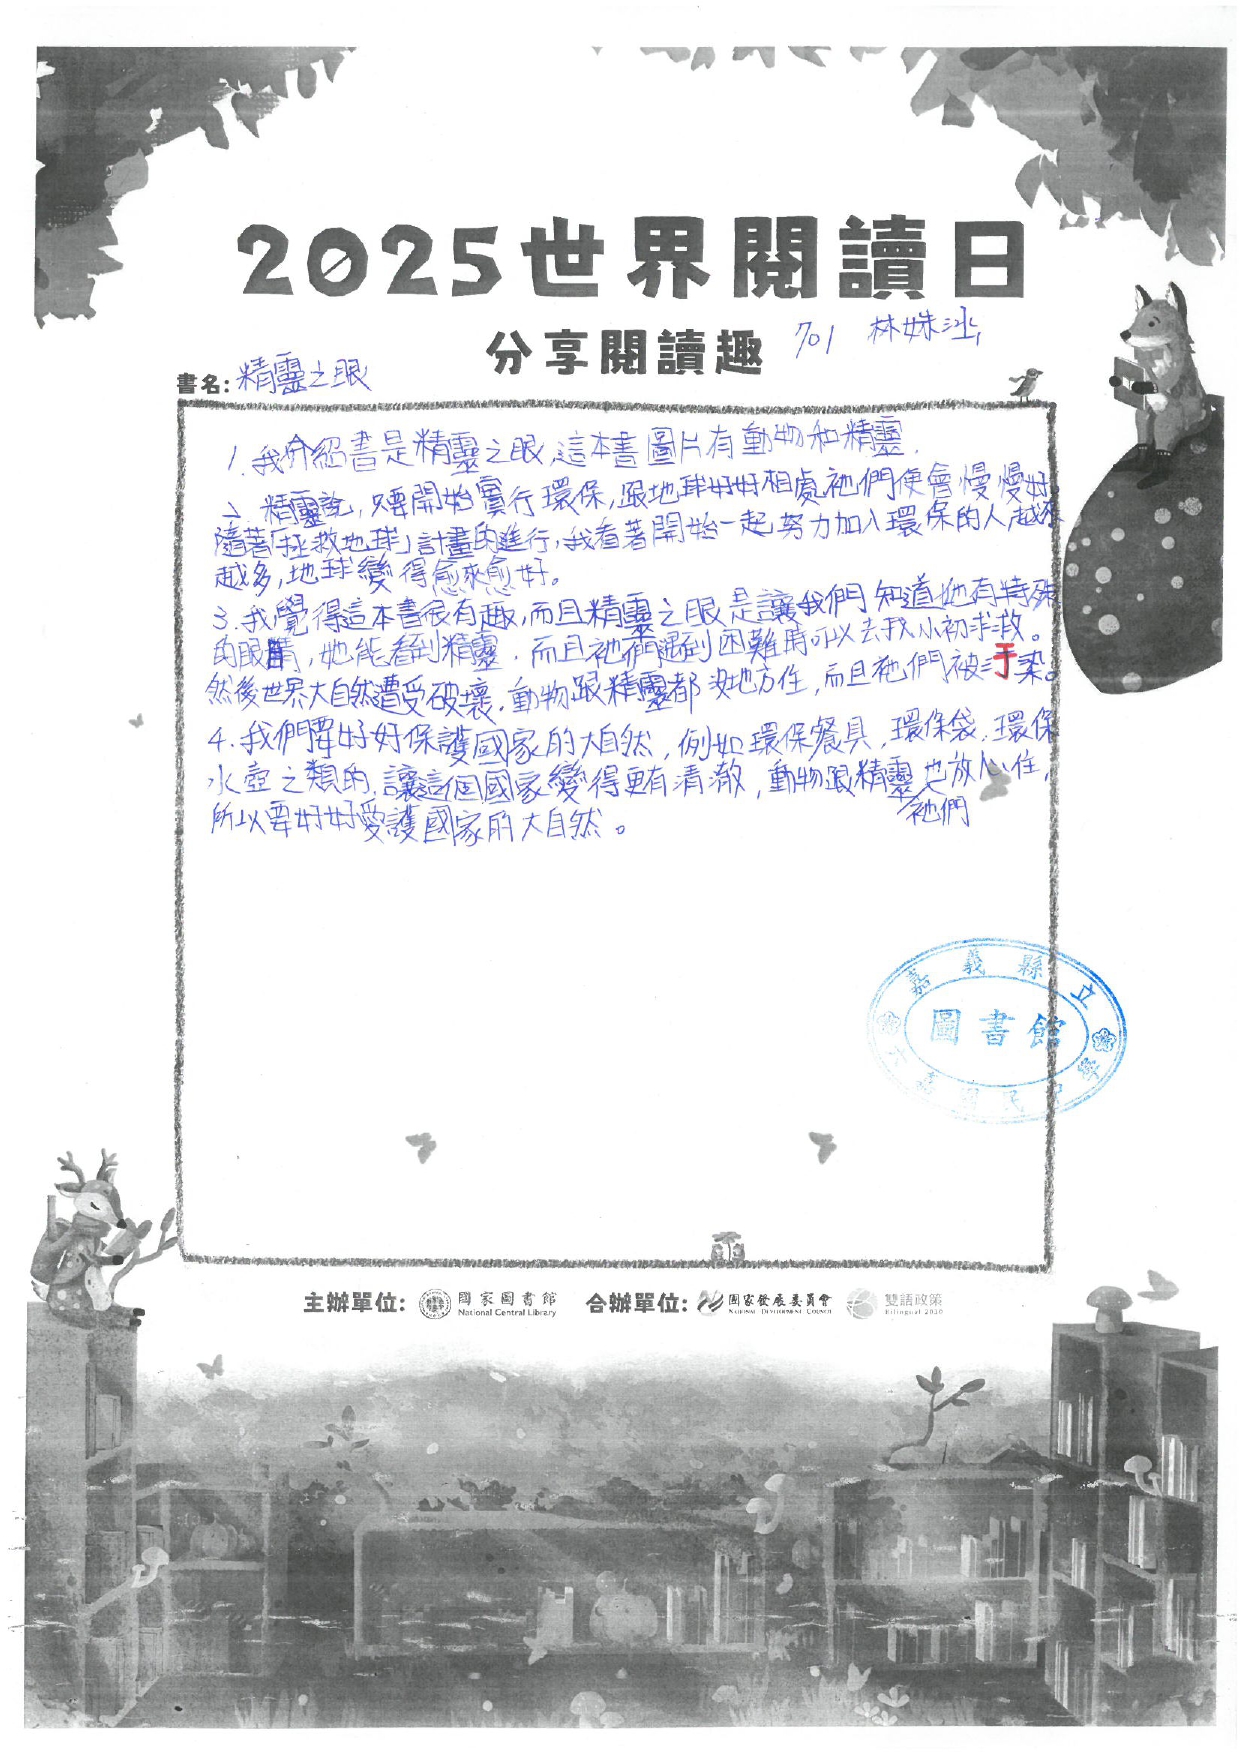 2025世界閱讀日
分享閱讀趣
701 林姝
書名:精靈之眼
1.我介紹書是精靈之眼,這本書圖片有動物和精靈.
2.精靈說,只要開始實行環保,跟地球好好相處,祂們便會慢慢好.
隨著「拯救地球」計畫的進行,我看著開始一起努力加入環保的人越來
越多,地球變得愈來愈好。
3.我覺得這本書很有趣,而且精靈之眼是讓我們知道她有特殊
的眼睛,她能看到精靈.而且祂們遇到困難時可以去找小初求救。
然後世界大自然遭受破壞.動物跟精靈都沒地方住,而且祂們被汙染。
4.我們要好好保護國家的大自然,例如環保餐具,環保袋.環保
水壺之類的.讓這個國家變得更有清澈,動物跟精靈也放心住,
祂們
所以要好好愛護國家的大自然。
嘉義縣立
圖書館
六嘉國民中學
主辦單位: 國家圖書館 National Central Library 合辦單位: 國家發展委員會 National Development Council 雙語政策 Bilingual 2030